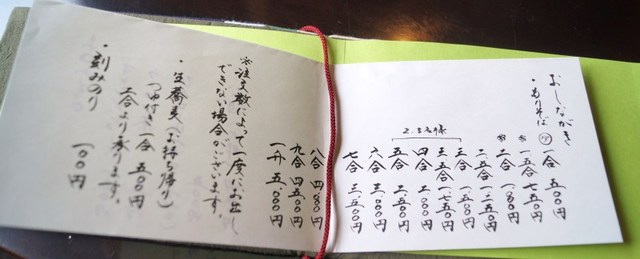 おしながき
・もりそば
一合 五〇〇円
一、五合 七五〇円
二合 一、〇〇〇円
二、五合 一、二五〇円
三合 一、五〇〇円
三、五合 一、七五〇円
四合 二、〇〇〇円
五合 二、五〇〇円
2.3名様
六合 三、〇〇〇円
七合 三、五〇〇円
八合 四、〇〇〇円
九合 四、五〇〇円
一升 五、〇〇〇円
※注文数によって一度にお出し
できない場合がございます。
・生蕎麦(お持ち帰り)
つゆ付き 一合 五〇〇円
二合より承ります。
・刻みのり 一〇〇円